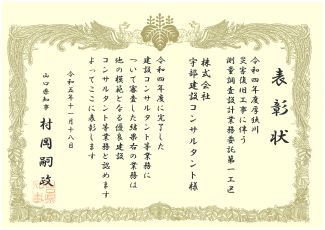 表彰状
令和四年度厚狭川
災害復旧工事に伴う
測量調査設計業務委託第一工区
株式会社
宇部建設コンサルタント様
令和四年度に完了した
建設コンサルタント等業務に
ついて審査した結果右の業務は
他の模範となる優良建設
コンサルタント等業務と認めます
よってここに表彰します
令和五年十一月十八日
山口県知事 村岡嗣政